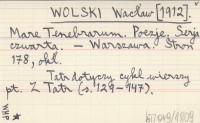 WOLSKI Wacław [1912].
Mare Tenebrarum. Poezje, Serja
czwarta. – Warszawa. Stron
178, okł.
Tatr dotyczy cykl wierszy
pt. Z Tatr (s. 129-147).
WHP